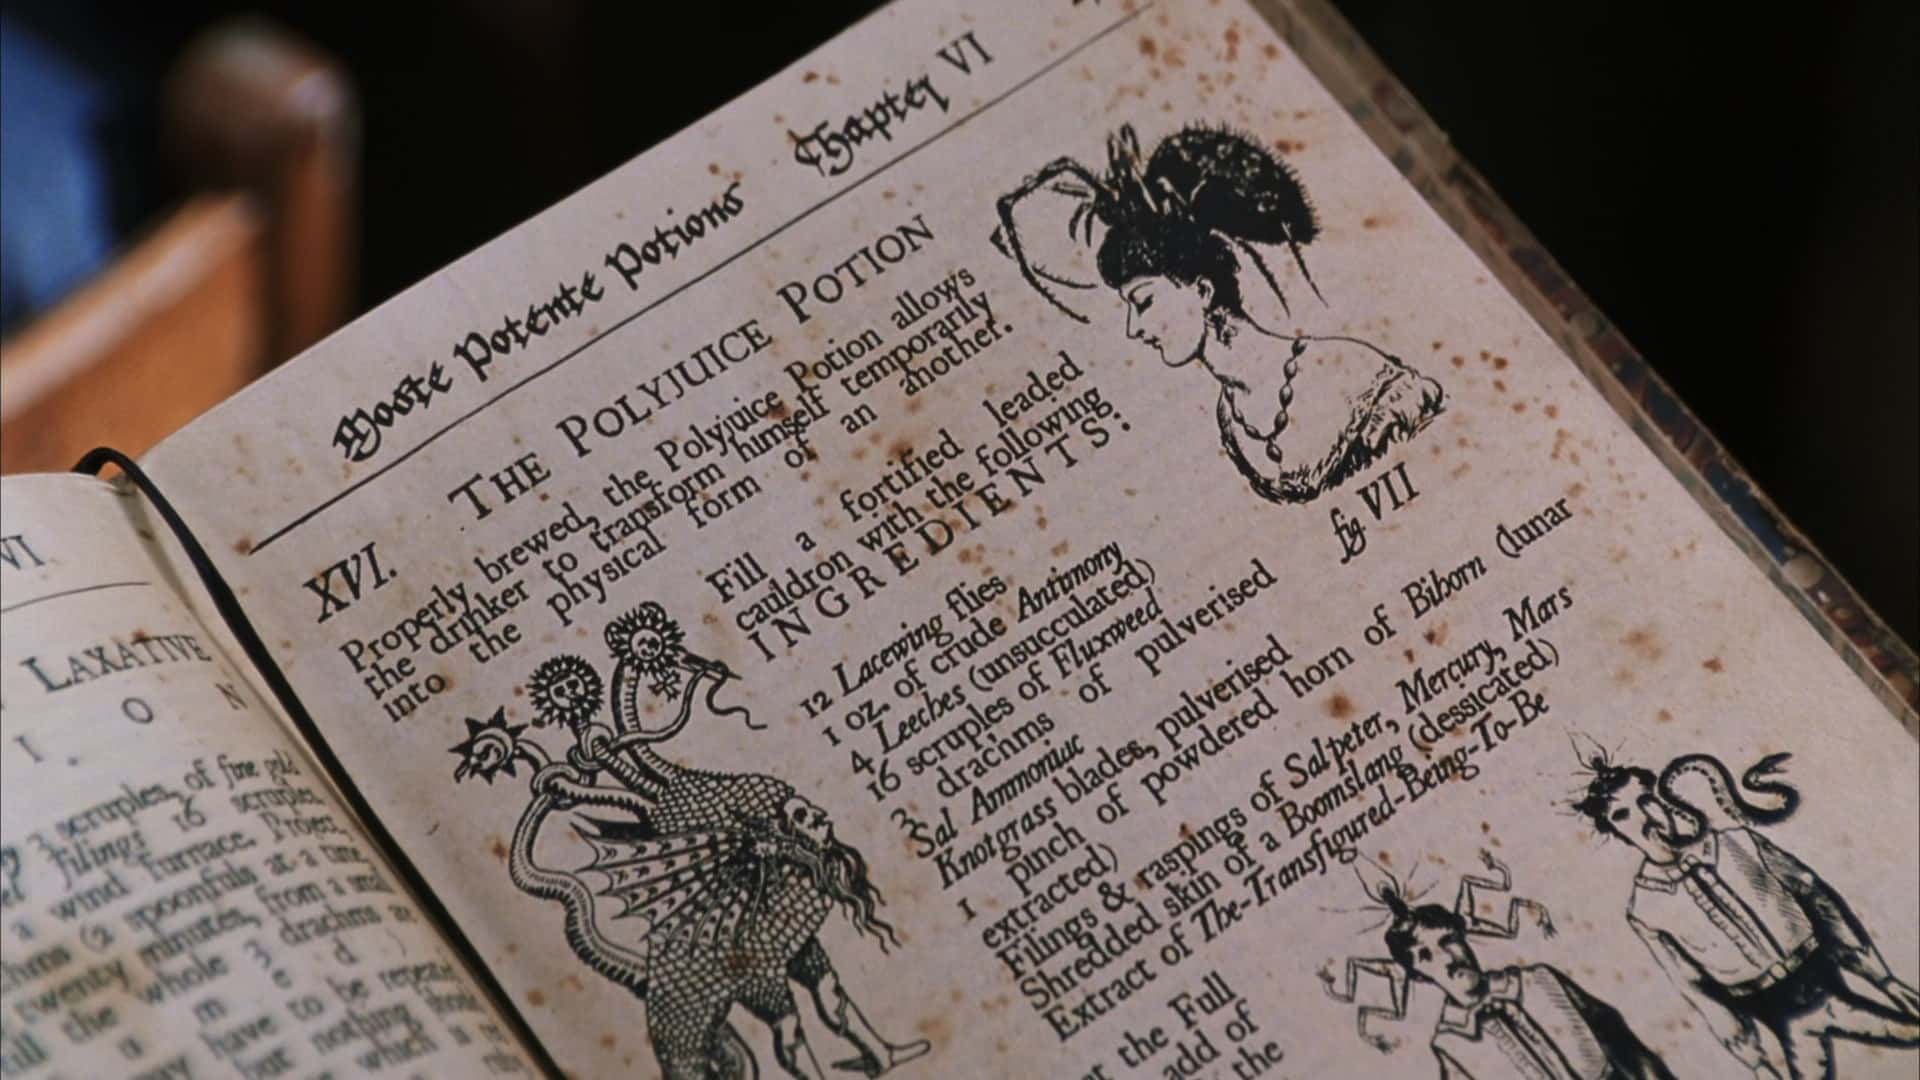 VI.
LAXATIVE
I O N
I .
3 scruples, of fine gold
filings 16 scruples
a wind furnace. Project
(2 spoonfuls at a time
twenty minutes, from a
the whole 3 drachms
m e d
have to be repeate
but nothing
which
Moste Potente Potions Chapter VI
XVI. THE POLYJUICE POTION
Properly brewed, the Polyjuice Potion allows
the drinker to transform himself temporarily
into the physical form of an another.
Fill a fortified leaded
cauldron with the following
INGREDIENTS:
12 Lacewing flies
1 oz. of crude Antimony
4 Leeches (unsucculated)
16 scruples of Fluxweed
3 drachms of pulverised
Sal Ammoniac
Knotgrass blades, pulverised
1 pinch of powdered horn of Bihorn (lunar
extracted)
Filings & raspings of Salpeter, Mercury, Mars
Shredded skin of a Boomslang (dessicated)
Extract of The-Transfigured-Being-To-Be
the Full
add of
the
fig VII